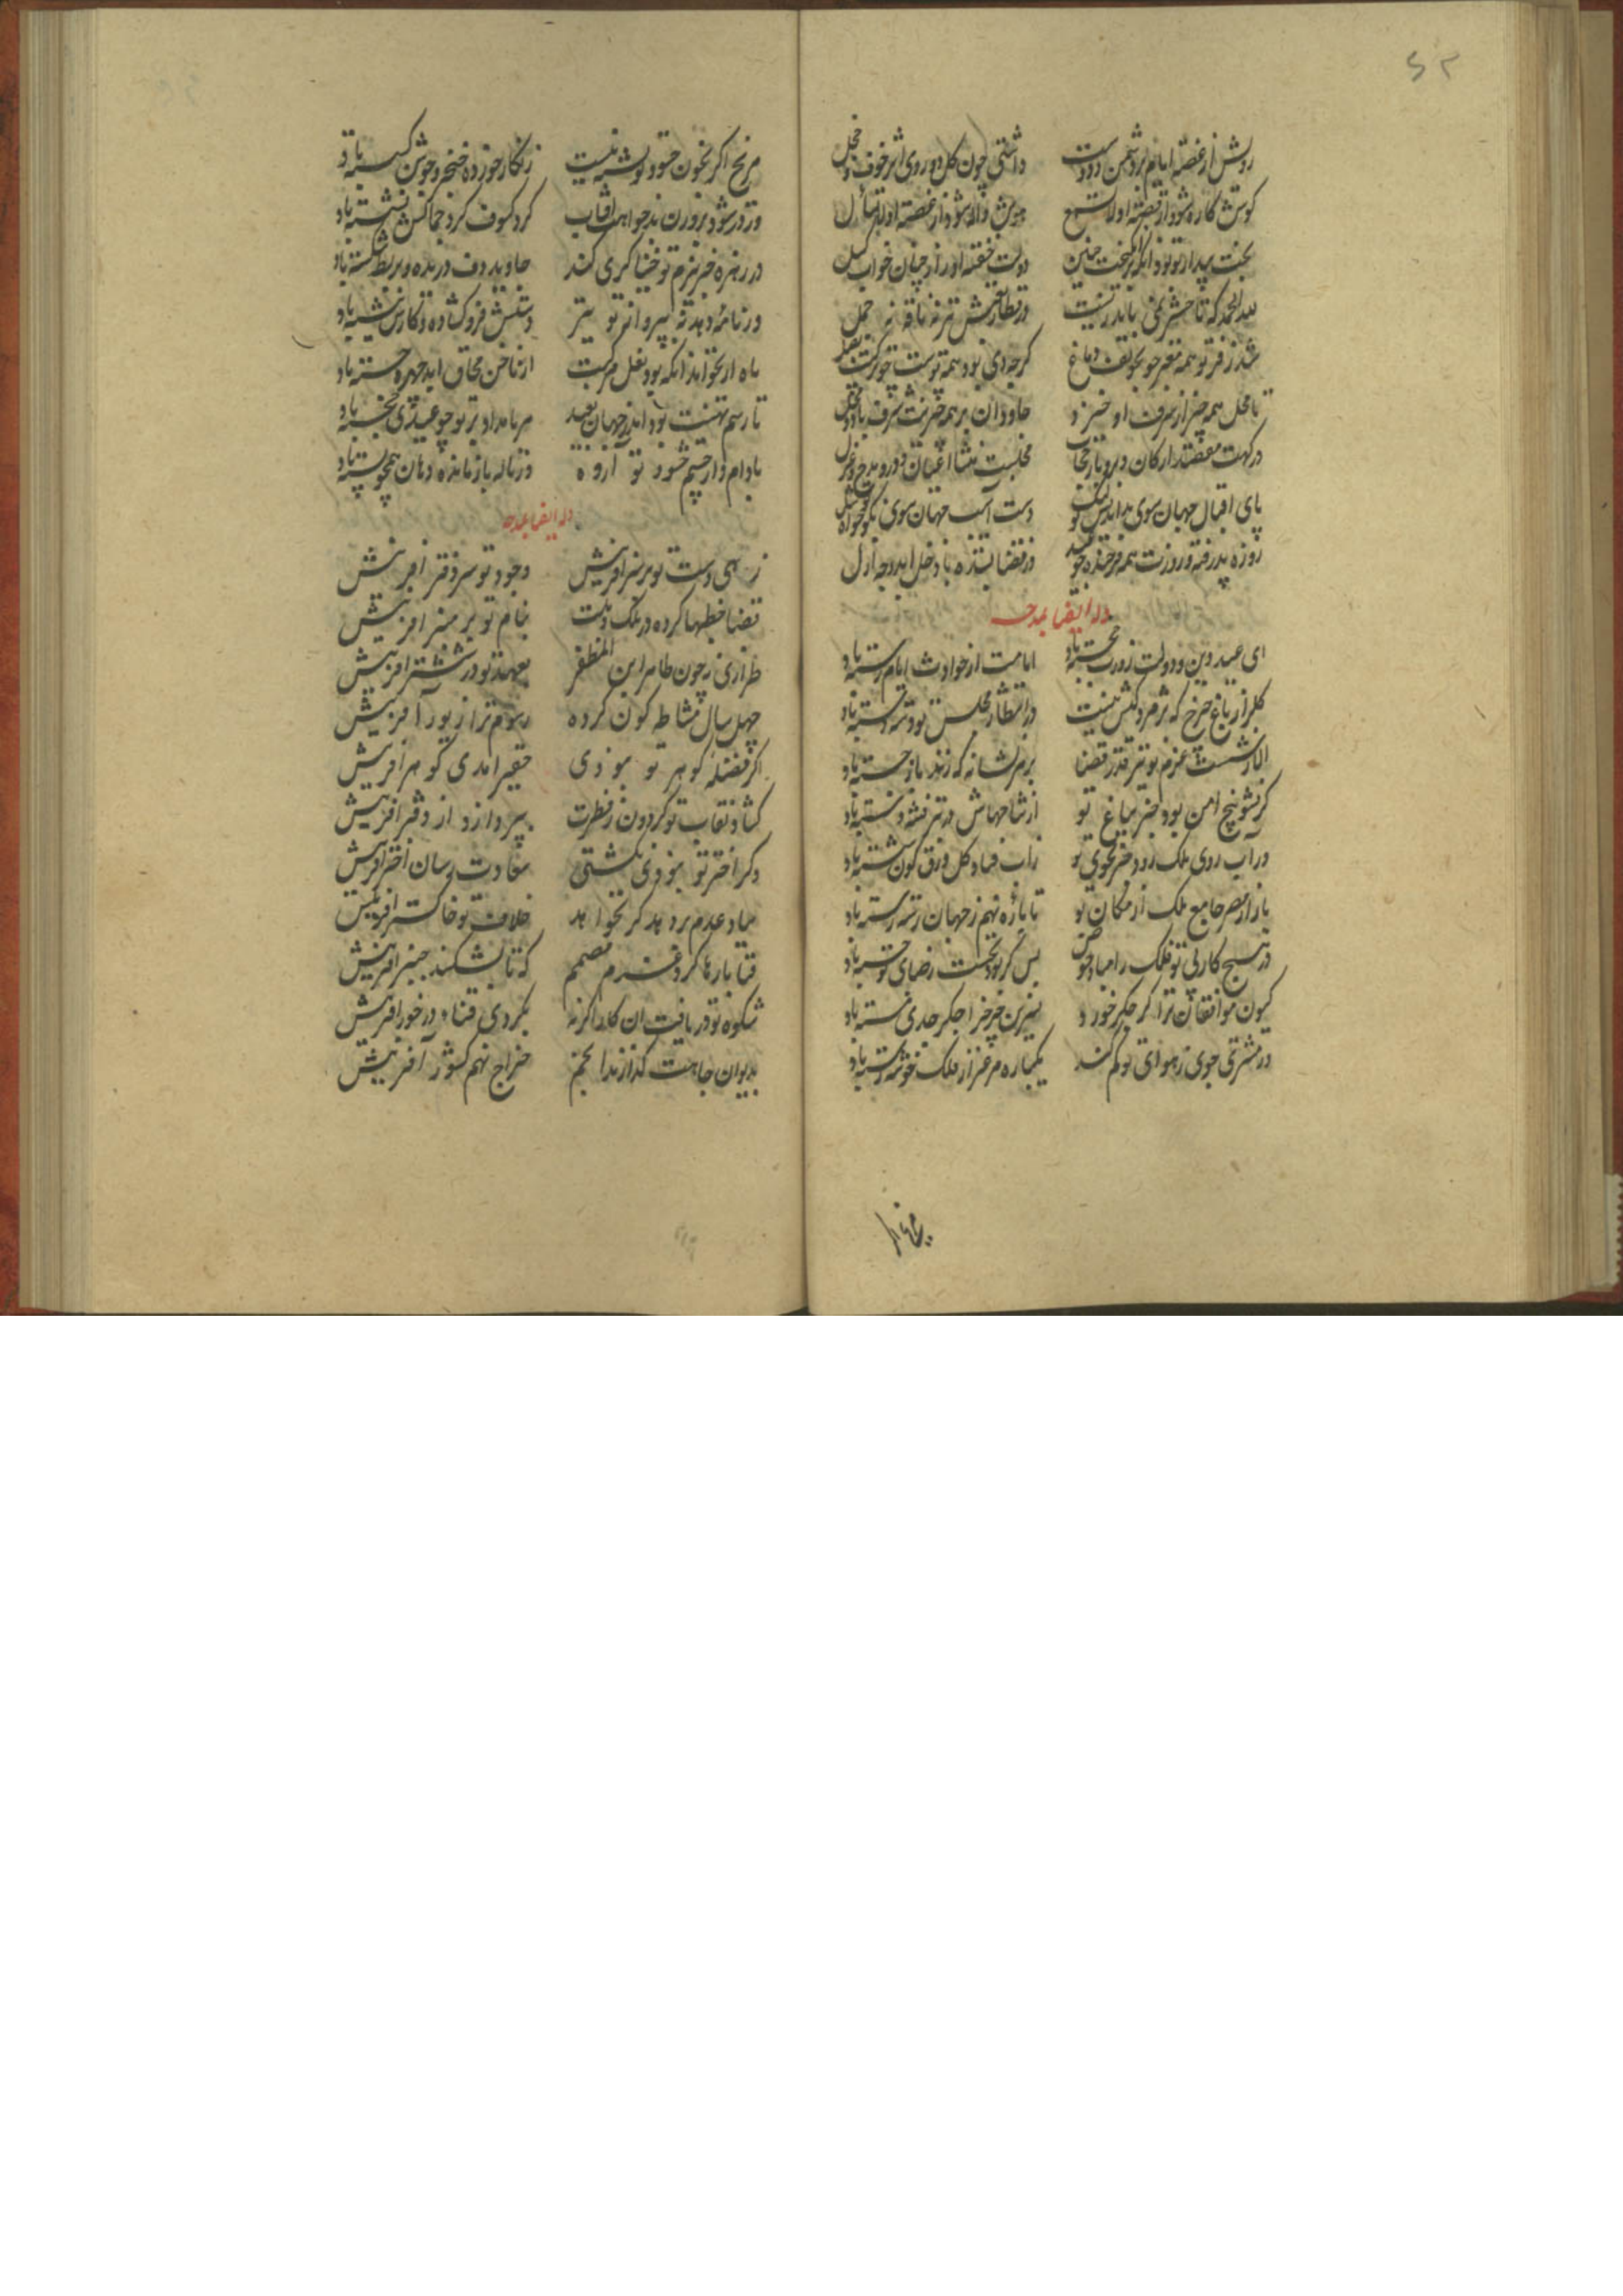 ۵۲
روش از غصه ایام بر دشمن و دوست داشتی چون گل دوروی اثر خوف و خجل
گوش کاره شود از قصه او لا تسمع هوش واله شود از غصه او لا تسأل
بخت بیدار تو بود انکه برانگیخت چنین دولت خفته او را ز چنان خواب کسل
لله الحمد که تا حشر نمی باید بست در قطار تش نه ناقه نه جمل
شد ز فر تو همه مغز چو بحبوحه دماغ گرچه دی بود همه پوست چو ترکیب بصل
تا محل همه چیز از شرف او خیزد جاودان بر همه چیزیت شرف باد و محل
درگهت مقصد ارکان و برو بار حجاب مجلست منشأ اعیان و درو مدح و غزل
پای اقبال جهان سوی بداندیش تو لنگ دست آسیب جهان سوی نکوخواه تو شل
روزه پذرفته و روزت همه فرخنده چو عید وز قضا بستده با دخل ابد وجه ازل
وله ایضا بمدحه
ای عید دین و دولت روزت خجسته باد ایامت از حوادث ایام رسته باد
گلزار باغ چرخ که پژمردگیش نیست در انتظار مجلس تو دسته دسته باد
الا ز شست عزم تو تیر قدر قضا بر هر نشانه که زند باز جسته باد
گر نشو بیخ امن بود جز بباغ تو از شاخهاش در تبر فتنه دسته باد
ور آب روی ملک رود جز بجوی تو زاب فساد کل ورق کون شسته باد
بازار مصر جامع ملک از مکان تو تا بازه نهم ز جهان رسته رسته باد
در هیچ کار بی تو فلک را مباد خوض پس گر بود نخست رضای تو جسته باد
گردون موافقان ترا گر جگر خورد نسرین چرخ را جگر جدی مسته باد
در مشرق جوی ز هوای تو کم کند یکباره مرغزار فلک خوشه رسته باد
مریخ اگر بخون حسود تو تشنه نیست زنگار خورده خنجر و جوشن گسسته باد
ور نور شود نه در تو خواهد آفتاب گرد کسوف گرد جمالش نشسته باد
ور زهره جز ببزم تو خنیاگری کند جاوید دف دریده و بربط شکسته باد
ور نامه دهد نه بپروانه تو تیر دستش ز فروگشاده و کارش نبسته باد
ماه ار نخواهد آنکه بود نعل مرکبت از ناخن محاق ابد چهره خسته باد
تا رسم تهنیت بود اندر جهان بعید هر بامداد بر تو چو عیدی خجسته باد
بادام وار چشم حسود تو آزده وز ناله باز مانده دهان همچو پسته باد
وله ایضا بمدحه
زهی دست تو بر سر آفرینش وجود تو سر دفتر آفرینش
قضا خطبها کرده در ملک و ملت بنام تو بر منبر آفرینش
طرازی نه چون طاهر ابن المظفر بعهد تو در ششتر آفرینش
چهل سال مشاطه کون کرده رسوم ترا زیور آفرینش
اگر فضله گوهر تو نبودی حقیر آمدی گوهر آفرینش
گشاد نقاب تو گردون ز فطرت بپردازد از دفتر آفرینش
وگر اختر تو نبودی نگشتی سعادت رسان اختر آفرینش
بباد عدم بر دهد گر نخواهد خلافت تو خاکستر آفرینش
قضا بارها کرد عزم مصمم که تا بشکند چنبر آفرینش
شکوه تو دریافت آن کار اگر نه بکردی قضا در خور آفرینش
بدیوان جاهت گذارند انجم خراج نهم کشور آفرینش